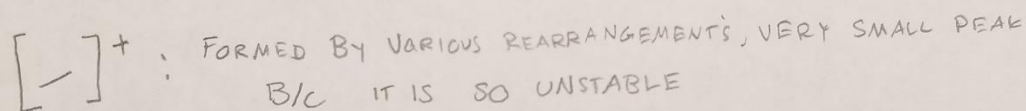 [ ]⁺ : FORMED BY VARIOUS REARRANGEMENT'S, VERY SMALL PEAK
B/C IT IS SO UNSTABLE